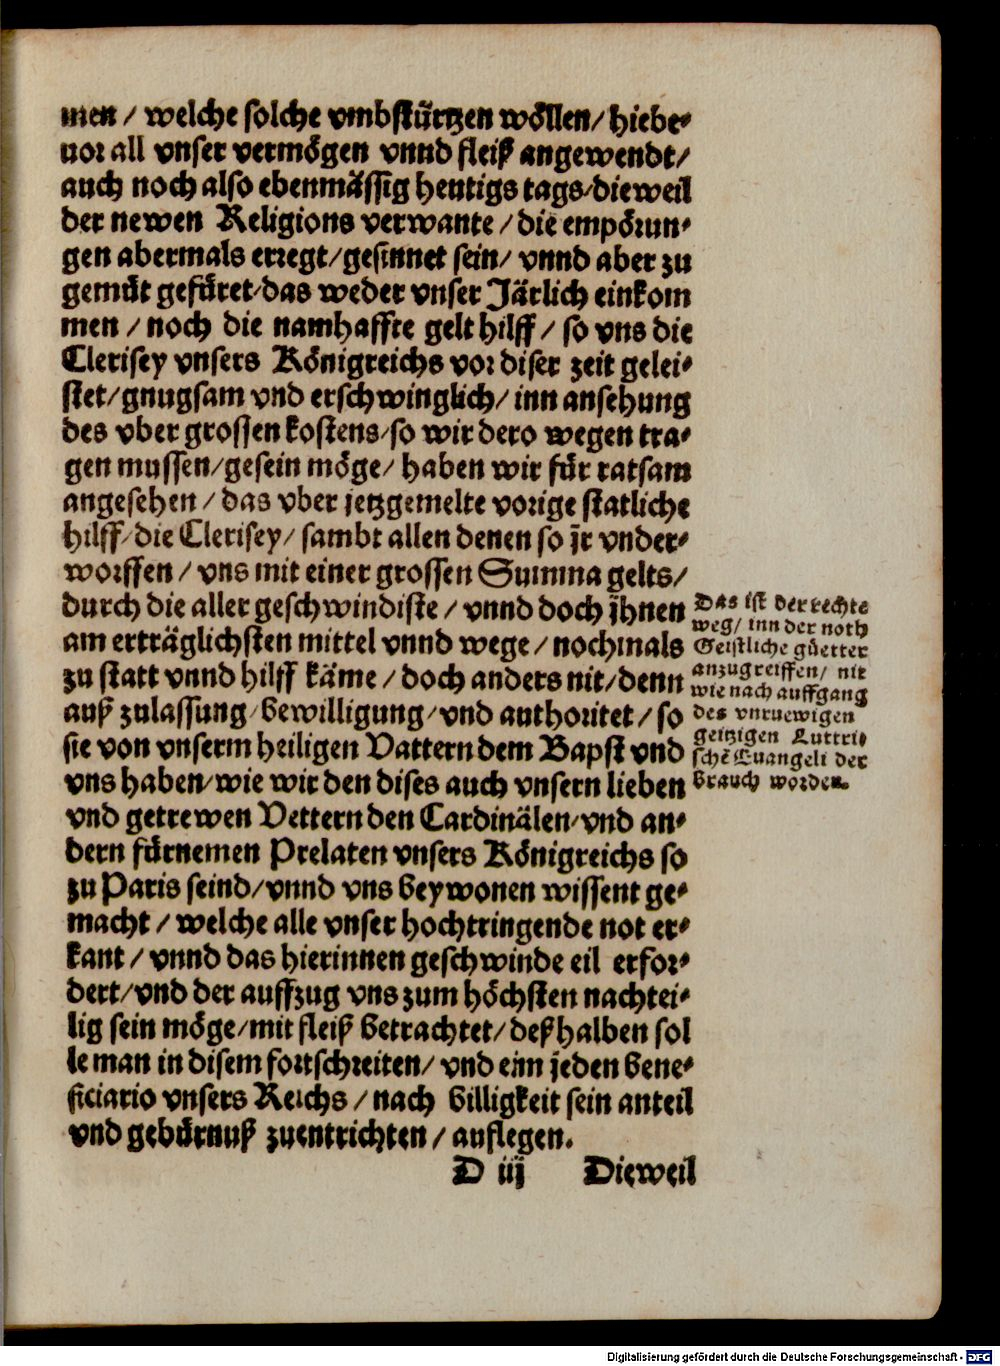 men / welche solche vmbstürtzen wöllen / hiebe⸗
uor all vnser vermögen vnnd fleiß angewendt /
auch noch also ebenmässig heutigs tags / dieweil
der newen Religions verwante / die empörun⸗
gen abermals erregt / gesinnet sein / vnnd aber zu
gemüt gefüret / das weder vnser Järlich einkom
men / noch die namhaffte gelt hilff / so vns die
Clerisey vnsers Königreichs vor diser zeit gelei⸗
stet / gnugsam vnd erschwinglich / inn ansehung
des vber grossen kostens / so wir dero wegen tra⸗
gen mussen / gesein möge / haben wir für ratsam
angesehen / das vber jetzgemelte vorige statliche
hilff / die Clerisey / sambt allen denen so jr vnder⸗
worffen / vns mit einer grossen Summa gelts /
durch die aller geschwindiste / vnnd doch jhnen
am erträglichsten mittel vnnd wege / nochmals
zu statt vnnd hilff käme / doch anders nit / denn
auß zulassung / bewilligung / vnd authoritet / so
sie von vnserm heiligen Vattern dem Bapst vnd
vns haben / wie wir den dises auch vnsern lieben
vnd getrewen Vettern den Cardinälen / vnd an⸗
dern fürnemen Prelaten vnsers Königreichs so
zu Paris seind / vnnd vns beywonen wissent ge⸗
macht / welche alle vnser hochtringende not er⸗
kant / vnnd das hierinnen geschwinde eil erfor⸗
dert / vnd der auffzug vns zum höchsten nachtei⸗
lig sein möge / mit fleiß betrachtet / deßhalben sol
le man in disem fortschreiten / vnd ein jeden bene⸗
ficiario vnsers Reichs / nach billigkeit sein anteil
vnd gebürnuß zuentrichten / auflegen.
Das ist der rechte
weg / inn der noth
Geistliche güetter
anzugreiffen / nit
wie nach auffgang
des vnruewigen
geitzigen Luttri⸗
schē Euangeli der
brauch worden.
D iij Dieweil
Digitalisierung gefördert durch die Deutsche Forschungsgemeinschaft - DFG